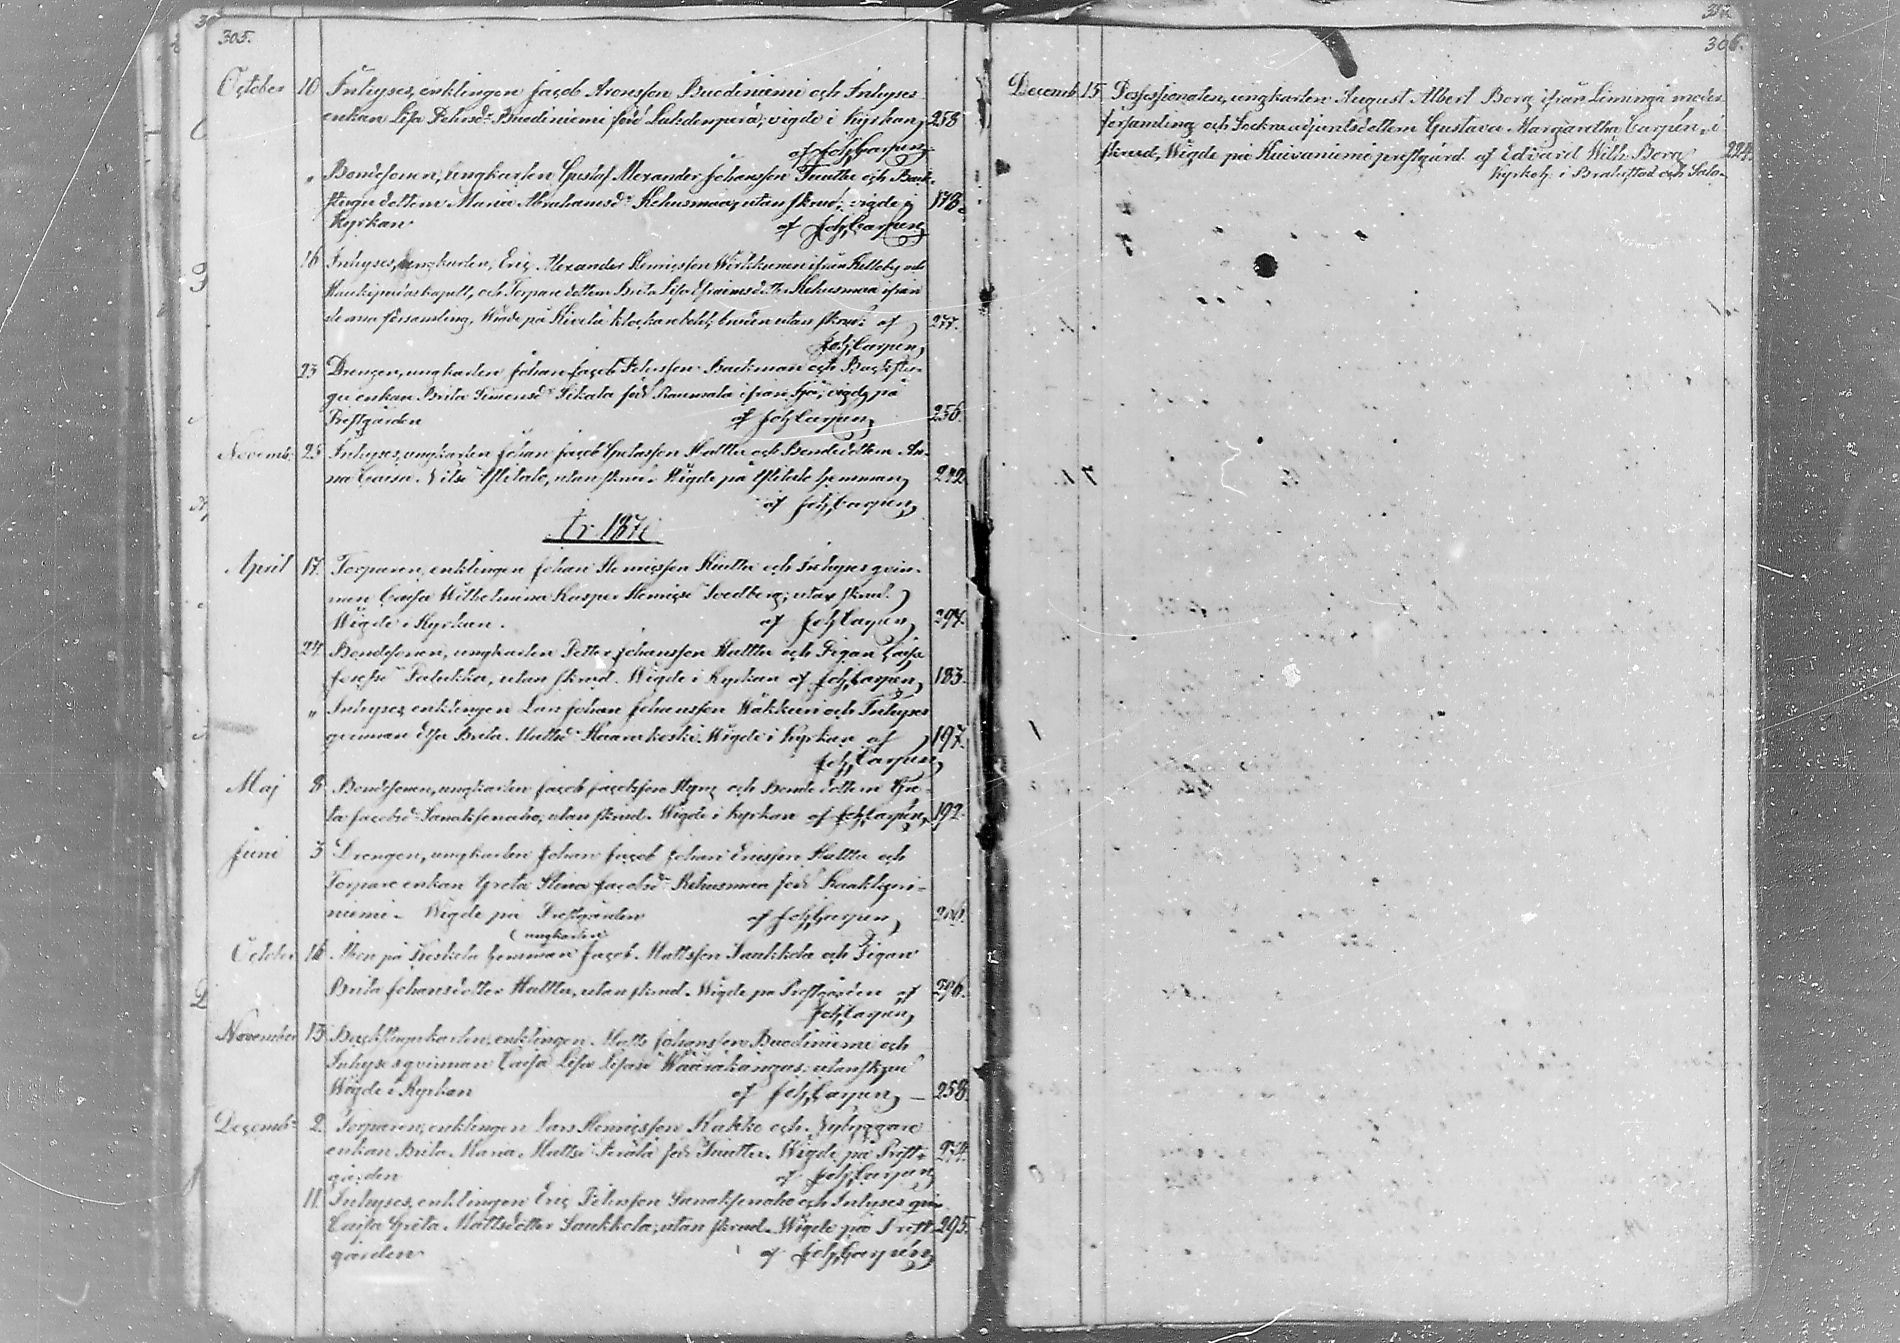 305.
October 10 Inhyses, enklingen Jacob Aronsson Buodiniemi och Inhyses
enkan Lisa Pehrsdr Buodiniemi född Lukdenperä, vigde i Kyrkan, 258
af Joh. Carpén,
" Bondesonen, ungkarlen Gustaf Alexander Johansson Tuuttu och Back-
stugu dottern Maria Abrahamsdr Rehusmaa, utan skrud; vigde i 178.
Kyrkan af Joh. Carpén,
16 Inhyses, ungkarlen, Eric Alexander Henricsson Wirkkunen ifrån Kelloby och
Haukipudas kapell, och Torpare dottern Brita Lisa Efraimsdotter Rehusmaa ifrån
denna församling, Wigde på Kivelä klockarebohl, bruden utan skrud af 277.
Joh. Carpén,
23 Drengen, ungkarlen Johan Jacob Pehrsson Backman och Backstu-
gu enkan Brita Simonsdr född Raumala ifrån Ijo; vigde på
Prestgården af Joh. Carpén, 256.
Novemb. 25 Inhyses, ungkarlen Johan Jacob Hultu och Bondedottern An-
na Caisa Nilsdr Ylitalo, utan skrud. Wigde på Ylitalo hemman, 242
af Joh. Carpén,
År 1870.
April 17. Torparen, enklingen Johan Henricsson och Inhyses qvin-
nan Caisa Wilhelmina Kasper Henricsdr Svedberg; utan skrud.
Wigde i Kyrkan. af Joh. Carpén, 294.
24. Bondesonen, ungkarlen Petter Johansson Hultu och Pigan Caisa
Josefsdr Palukka, utan skrud. Wigde i Kyrkan af Joh. Carpén, 183.
" Inhyses, enklingen Lars Johan Johansson Wäkkuri och Inhyses
qvinnan Elsa Brita Mattsdr Haarakoski. Wigde i Kyrkan af 197.
Joh. Carpén,
Maj 8 Bondesonen, ungkarlen Jacob Jacobsson Hyry och Bonde dottern Gre-
ta Jacobsdr Sanaksenaho, utan skrud. Wigde i Kyrkan af Joh. Carpén, 192.
Juni 3 Drengen, ungkarlen Johan Jacob Johan Ericsson Hultu och
Torpare enkan Greta Stina Jacobsdr Rehusmaa född
niemi. Wigde på Prestgården af Joh. Carpén, 206.
(ungkarlen)
October 16. Åbon på Keskitalo hemman Jacob Mattsson Saukkola och Pigan
Brita Johansdotter Hultu, utan skrud. Wigde på Prestgården af 296.
Joh. Carpén,
November 13 Backstugukarlen, enklingen Matts Johansson Buodiniemi och
Inhyses qvinnan Caisa Lisa Wääräkangas, utan skrud
Wigde i Kyrkan af Joh. Carpén, 258.
Decembr 2. Torparen, enklingen Lars Henricsson Kakko och Nybyggare
enkan Brita Maria Mattsdr Perälä född Tuuttu. Wigde på Prest- 274.
gården af Joh. Carpén,
11. Inhyses, enklingen Eric Pehrsson Sanaksenaho och Inhyses qvin
Caisa Greta Mattsdotter Saukkola; utan skrud. Wigde på Prest- 295.
gården af Joh. Carpén,
306.
Decemb. 15. Possessionaten, ungkarlen August Albert Borg ifrån Limingå moder
församling och Sockneadjuntsdottern Gustava Margaretha Carpén, i
skrud, Wigde på Kuivaniemi prestgård af Edvard Wilh. Borg 224.
Kyrkoh. i Brahestad och Salo.